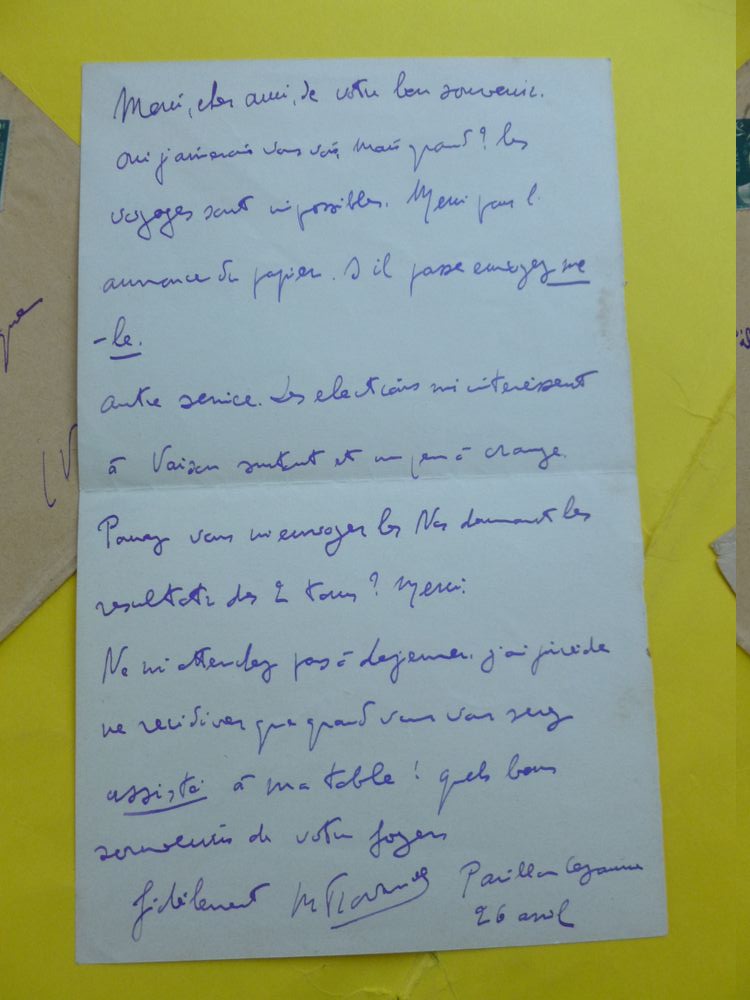 Merci, cher ami, de votre bon souvenir.
Oui j'aimerais vous voir, mais quand? les
voyages sont impossibles. Merci pour l
annonce du papier. S il passe envoyez me
-le.
Autre service. Les elections m interessent
à Vaison surtout et un peu à Orange.
Pouvez vous m envoyer les Nos donnant les
resultats des 2 tours? Merci.
Ne m attendez pas à dejeuner. j'ai
ne recidiver que quand vous vous serez
assista à ma table! quels bons
souvenirs de votre foyer
fidèlement Pavillon Cezanne
26 avril